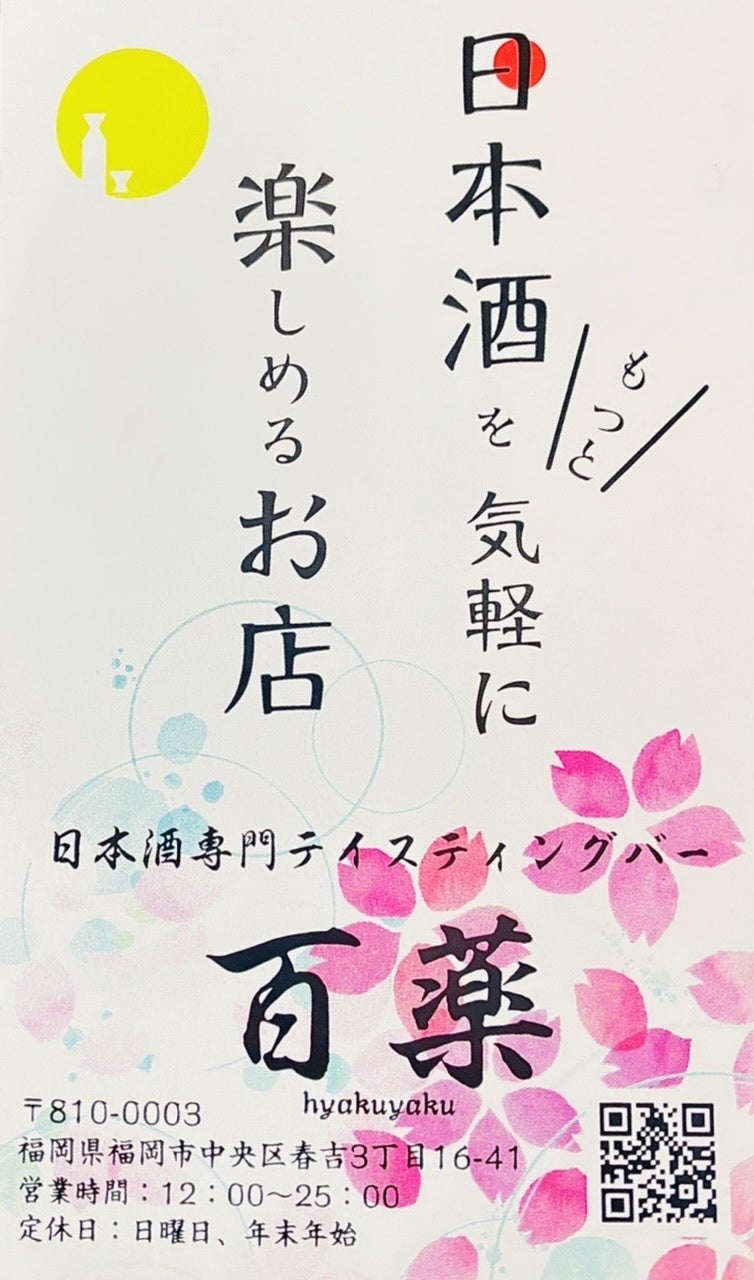 日本酒を気軽に
もっと
楽しめるお店
日本酒専門テイスティングバー
百薬
hyakuyaku
〒810-0003
福岡県福岡市中央区春吉3丁目16-41
営業時間：12：00～25：00
定休日：日曜日、年末年始